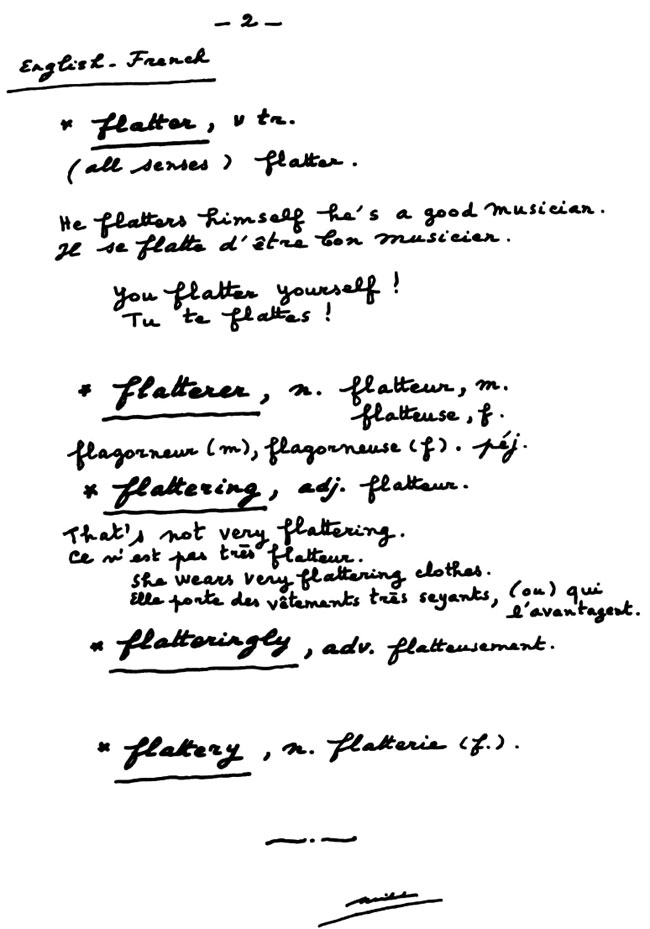 - 2 -
English - French
* flatter, v tr.
(all senses) flatter.
He flatters himself he's a good musician.
Il se flatte d'être bon musicien.
You flatter yourself !
Tu te flattes !
* flatterer, n. flatteur, m.
flatteuse, f.
flagorneur (m), flagorneuse (f). péj.
* flattering, adj. flatteur.
That's not very flattering.
Ce n'est pas très flatteur.
She wears very flattering clothes.
Elle porte des vêtements très seyants, (ou) qui
l'avantagent.
* flatteringly, adv. flatteusement.
* flattery, n. flatterie (f.).